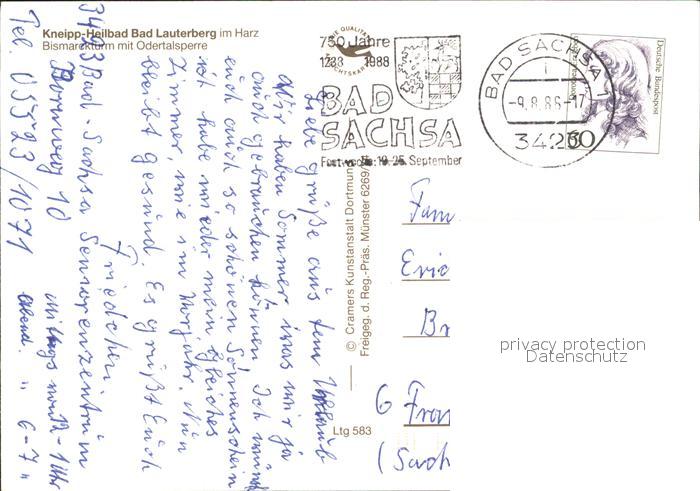 Kneipp-Heilbad Bad Lauterberg im Harz
Bismarckturm mit Odertalsperre
750 Jahre
1238 1988
BAD
SACHSA
Festwoche: 19.-25. September
BAD SACHSA 1
-9.8.86-17
3423
60
Deutsche Bundespost
Liebe Grüße aus dem Urlaub
Wir haben Sommer was wir ja
auch gebrauchen können. Ich wünsche
euch auch so schönen Sonnenschein
ich habe wieder mein gleiches
Zimmer, wie im Vorjahr. Nun
bleibt gesund. Es grüßt Euch
Friedchen
3423 Bad-Sachsa Seniorenzentrum
10 mittags 1 Uhr
Tel. 05523/1071 abend. " 6-7 "
© Cramers Kunstanstalt Dortmund
Freigeg. d. Reg.-Präs. Münster 6269/
Ltg 583
Fam
Eric
Br
6 Fran
(Sach
privacy protection
Datenschutz